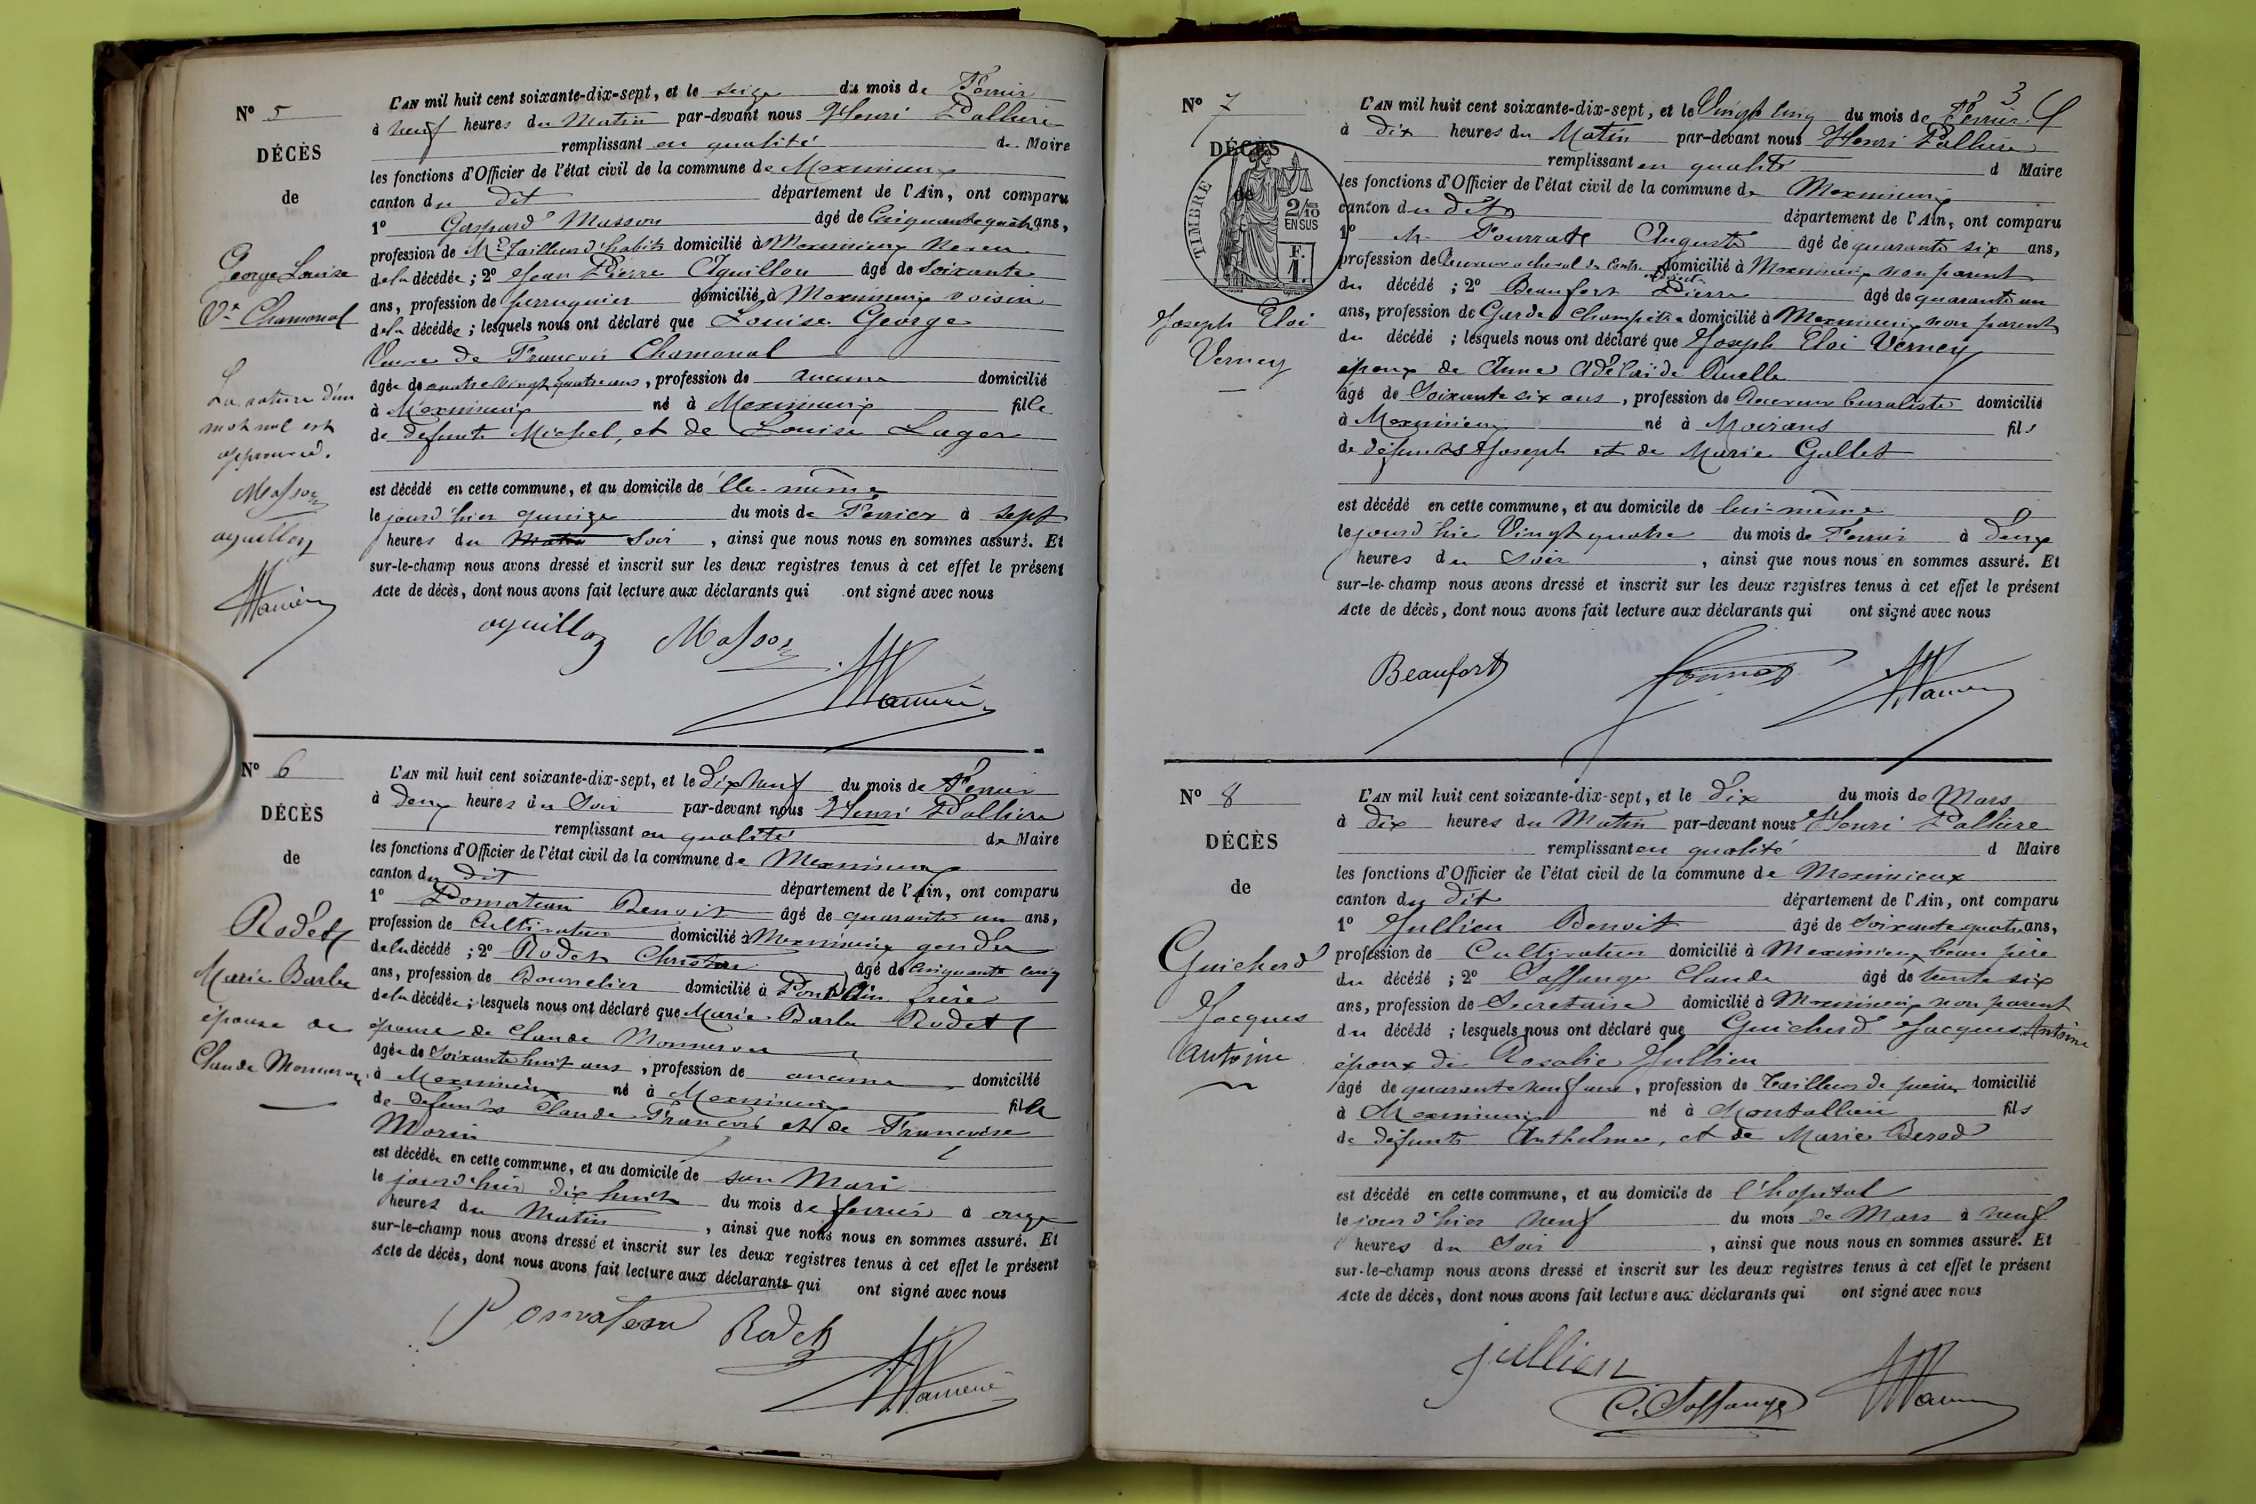 Nº 5
DÉCÈS
de
George Louise
Vve Chamonal
La rature d'un
mot nul est
approuvé.
Masson
aguillon
L'AN mil huit cent soixante-dix-sept, et le seize du mois de Février
à neuf heures du Matin par-devant nous Henri Pallière
remplissant en qualité de Maire
les fonctions d'Officier de l'état civil de la commune de Meximieux
canton du dit département de l'Ain, ont comparu
1º Gaspard Masson âgé de Cinquante quatre ans,
profession de Md Tailleur d'habits domicilié à Meximieux Neveu
de la décédée ; 2º Jean Pierre Aguillon âgé de Soixante
ans, profession de perruquier domicilié à Meximieux voisin
de la décédée ; lesquels nous ont déclaré que Louise George
Veuve de François Chamonal
âgée de quatre vingt quatre ans, profession de aucune domicilié
à Meximieux né à Meximieux fille
de defunts Michel, et de Louise Lager
est décédé en cette commune, et au domicile de elle-même
le jour d'hier quinze du mois de Fevrier à sept
heures du Matin Soir, ainsi que nous nous en sommes assuré. Et
sur-le-champ nous avons dressé et inscrit sur les deux registres tenus à cet effet le présent
Acte de décès, dont nous avons fait lecture aux déclarants qui ont signé avec nous
aguillon Masson
Nº 6
DÉCÈS
de
Rodet
Marie Barbe
épouse de
Claude Monneron
L'AN mil huit cent soixante-dix-sept, et le Dix Neuf du mois de Fevrier
à Deux heures du Soir par-devant nous Henri Pallière
remplissant en qualité de Maire
les fonctions d'Officier de l'état civil de la commune de Meximieux
canton du dit département de l'Ain, ont comparu
1º Pomateau Benoit âgé de quarante un ans,
profession de Cultivateur domicilié à Meximieux gendre
de la décédé ; 2º Rodet âgé de Cinquante cinq
ans, profession de Bourrelier domicilié à Pont d'Ain frère
de la décédée ; lesquels nous ont déclaré que Marie Barbe Rodet
épouse de Claude Monneron
âgée de Soixante huit ans, profession de aucune domicilié
à Meximieux né à Meximieux fille
de defunts Claude François et de Françoise
Morin
est décédée en cette commune, et au domicile de son Mari
le jour d'hier dix huit du mois de fevrier à onze
heures du Matin, ainsi que nous nous en sommes assuré. Et
sur-le-champ nous avons dressé et inscrit sur les deux registres tenus à cet effet le présent
Acte de décès, dont nous avons fait lecture aux déclarants qui ont signé avec nous
Pomateau Rodet
3
Nº 7
DÉCÈS
de
TIMBRE
2/10 EN SUS
F. 1.
Joseph Eloi
Verney
L'AN mil huit cent soixante-dix-sept, et le Vingt Cinq du mois de Fevrier
à Dix heures du Matin par-devant nous Henri Pallière
remplissant en qualité d Maire
les fonctions d'Officier de l'état civil de la commune de Meximieux
canton du dit département de l'Ain, ont comparu
1º Mr Pourrat Auguste âgé de quarante six ans,
profession de Receveur a cheval des Contr. indirectes domicilié à Meximieux non parent
du décédé ; 2º Beaufort Pierre âgé de quarante un
ans, profession de Garde Champêtre domicilié à Meximieux non parent
du décédé ; lesquels nous ont déclaré que Joseph Eloi Verney
époux de Anne Adélaïde
âgé de Soixante six ans, profession de Receveur buraliste domicilié
à Meximieux né à Moirans fils
de défunts Joseph et de Marie Gallet
est décédé en cette commune, et au domicile de lui-même
le jour d'hier Vingt quatre du mois de Fevrier à Deux
heures du Soir, ainsi que nous nous en sommes assuré. Et
sur-le-champ nous avons dressé et inscrit sur les deux registres tenus à cet effet le présent
Acte de décès, dont nous avons fait lecture aux déclarants qui ont signé avec nous
Beaufort
Nº 8
DÉCÈS
de
Guicherd
Jacques
Antoine
L'AN mil huit cent soixante-dix-sept, et le Dix du mois de Mars
à Dix heures du Matin par-devant nous Henri Pallière
remplissant en qualité d Maire
les fonctions d'Officier de l'état civil de la commune de Meximieux
canton du dit département de l'Ain, ont comparu
1º Jullien Benoit âgé de Soixante quatre ans,
profession de Cultivateur domicilié à Meximieux beau père
du décédé ; 2º Soffange Claude âgé de trente six
ans, profession de Secretaire domicilié à Meximieux non parent
du décédé ; lesquels nous ont déclaré que Guicherd Jacques Antoine
époux de Rosalie Jullien
âgé de quarante neuf ans, profession de Tailleur de pierre domicilié
à Meximieux né à Montallieu fils
de défunts Anthelme, et de Marie Berod
est décédé en cette commune, et au domicile de l'hopital
le jour d'hier neuf du mois de Mars à neuf
heures du Soir, ainsi que nous nous en sommes assuré. Et
sur-le-champ nous avons dressé et inscrit sur les deux registres tenus à cet effet le présent
Acte de décès, dont nous avons fait lecture aux déclarants qui ont signé avec nous
jullien
C. Soffange